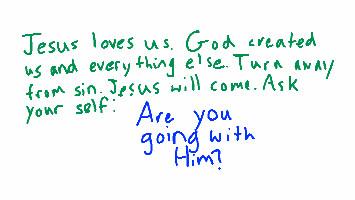 Jesus loves us. God created
us and everything else. Turn away
from sin. Jesus will come. Ask
your self:
Are you
going with
Him?